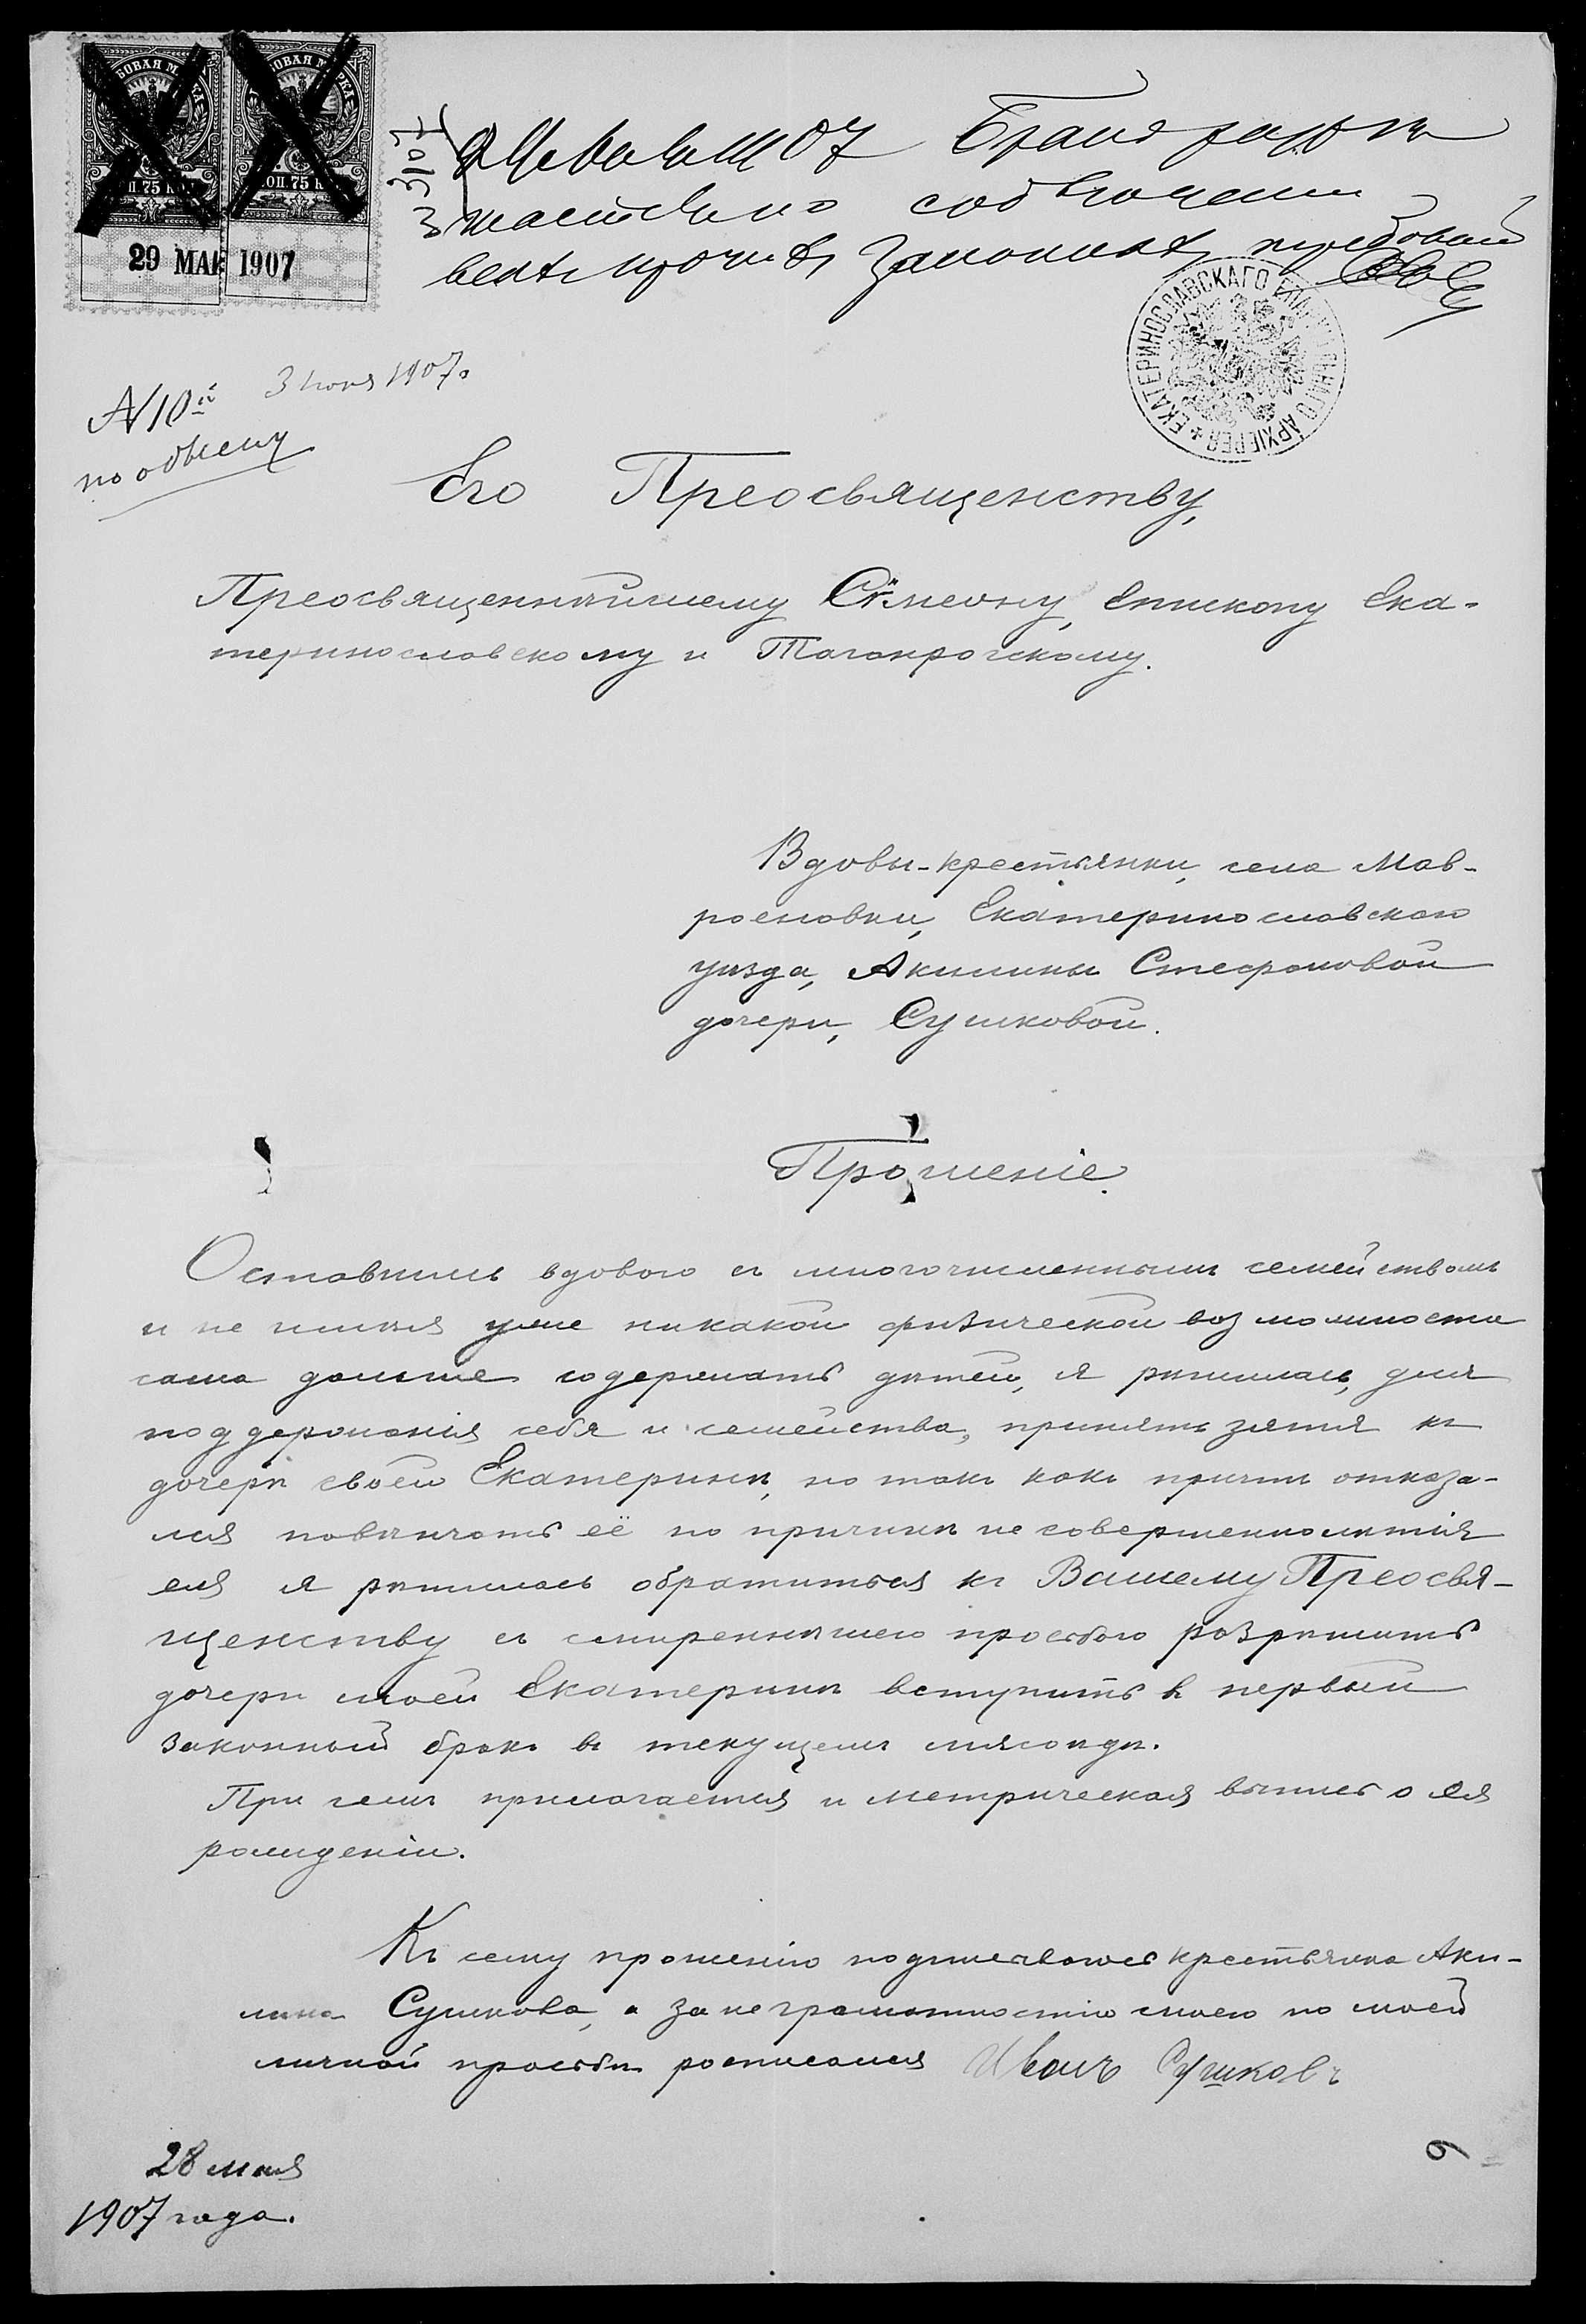 ГЕРБОВАЯ МАРКА ГЕРБОВАЯ МАРКА
75 КОП. 75 КОП. 75
29 МАЯ 1907
3107
1907 Бракъ разрѣ-
шается съ соблюденіемъ
всѣхъ прочихъ законныхъ требованій
ЕКАТЕРИНОСЛАВСКАГО ЕПАРХІАЛЬНАГО АРХІЕРЕЯ
3 Іюня 1907 г.
N 10й
Его Преосвященству,
Преосвященнѣйшему Сѵмеону, Епископу Ека-
теринославскому и Таганрогскому.
Вдовы-крестьянки, села Мав-
роеновки, Екатеринославскаго
уѣзда, Акилины Стефановой
дочери, Сушковой.
Прошеніе.
Оставшись вдовою съ многочисленнымъ семействомъ
и не имѣя уже никакой физической возможности
сама дольше содержать дѣтей, я рѣшилась, для
поддержанія себя и семейства, принять зятя къ
дочери своей Екатеринѣ, но такъ какъ причтъ отказа-
лся повѣнчать её по причинѣ несовершеннолѣтія
ея я рѣшилась обратиться къ Вашему Преосвя-
щенству съ смиреннѣйшею просьбою разрѣшить
дочери моей Екатеринѣ вступить въ первый
законный бракъ въ текущемъ мясоѣдѣ.
При семъ прилагается и метрическая выпись о ея
рожденіи.
Къ сему прошенію подписываюсь крестьянка Аки-
лина Сушкова, а за неграмотностію моею по моей
личной просьбѣ росписался Иванъ Сушковъ
6
28 мая
1907 года.